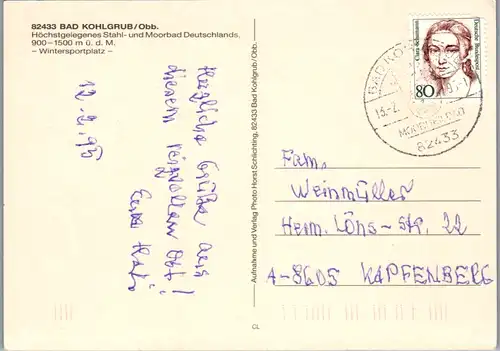 82433 BAD KOHLGRUB/Obb.
Höchstgelegenes Stahl- und Moorbad Deutschlands,
900–1500 m ü. d. M.
– Wintersportplatz –
12.2.95
Herzliche Grüße aus
diesem reizvollen Ort!
Aufnahme und Verlag Photo Horst Schlichting, 82433 Bad Kohlgrub/Obb.
Clara Schumann
Deutsche Bundespost
80
BAD KO
13.2.
82433
Fam.
Weinmüller
Herm. Löns-Str. 22
A-8605 KAPFENBERG
CL